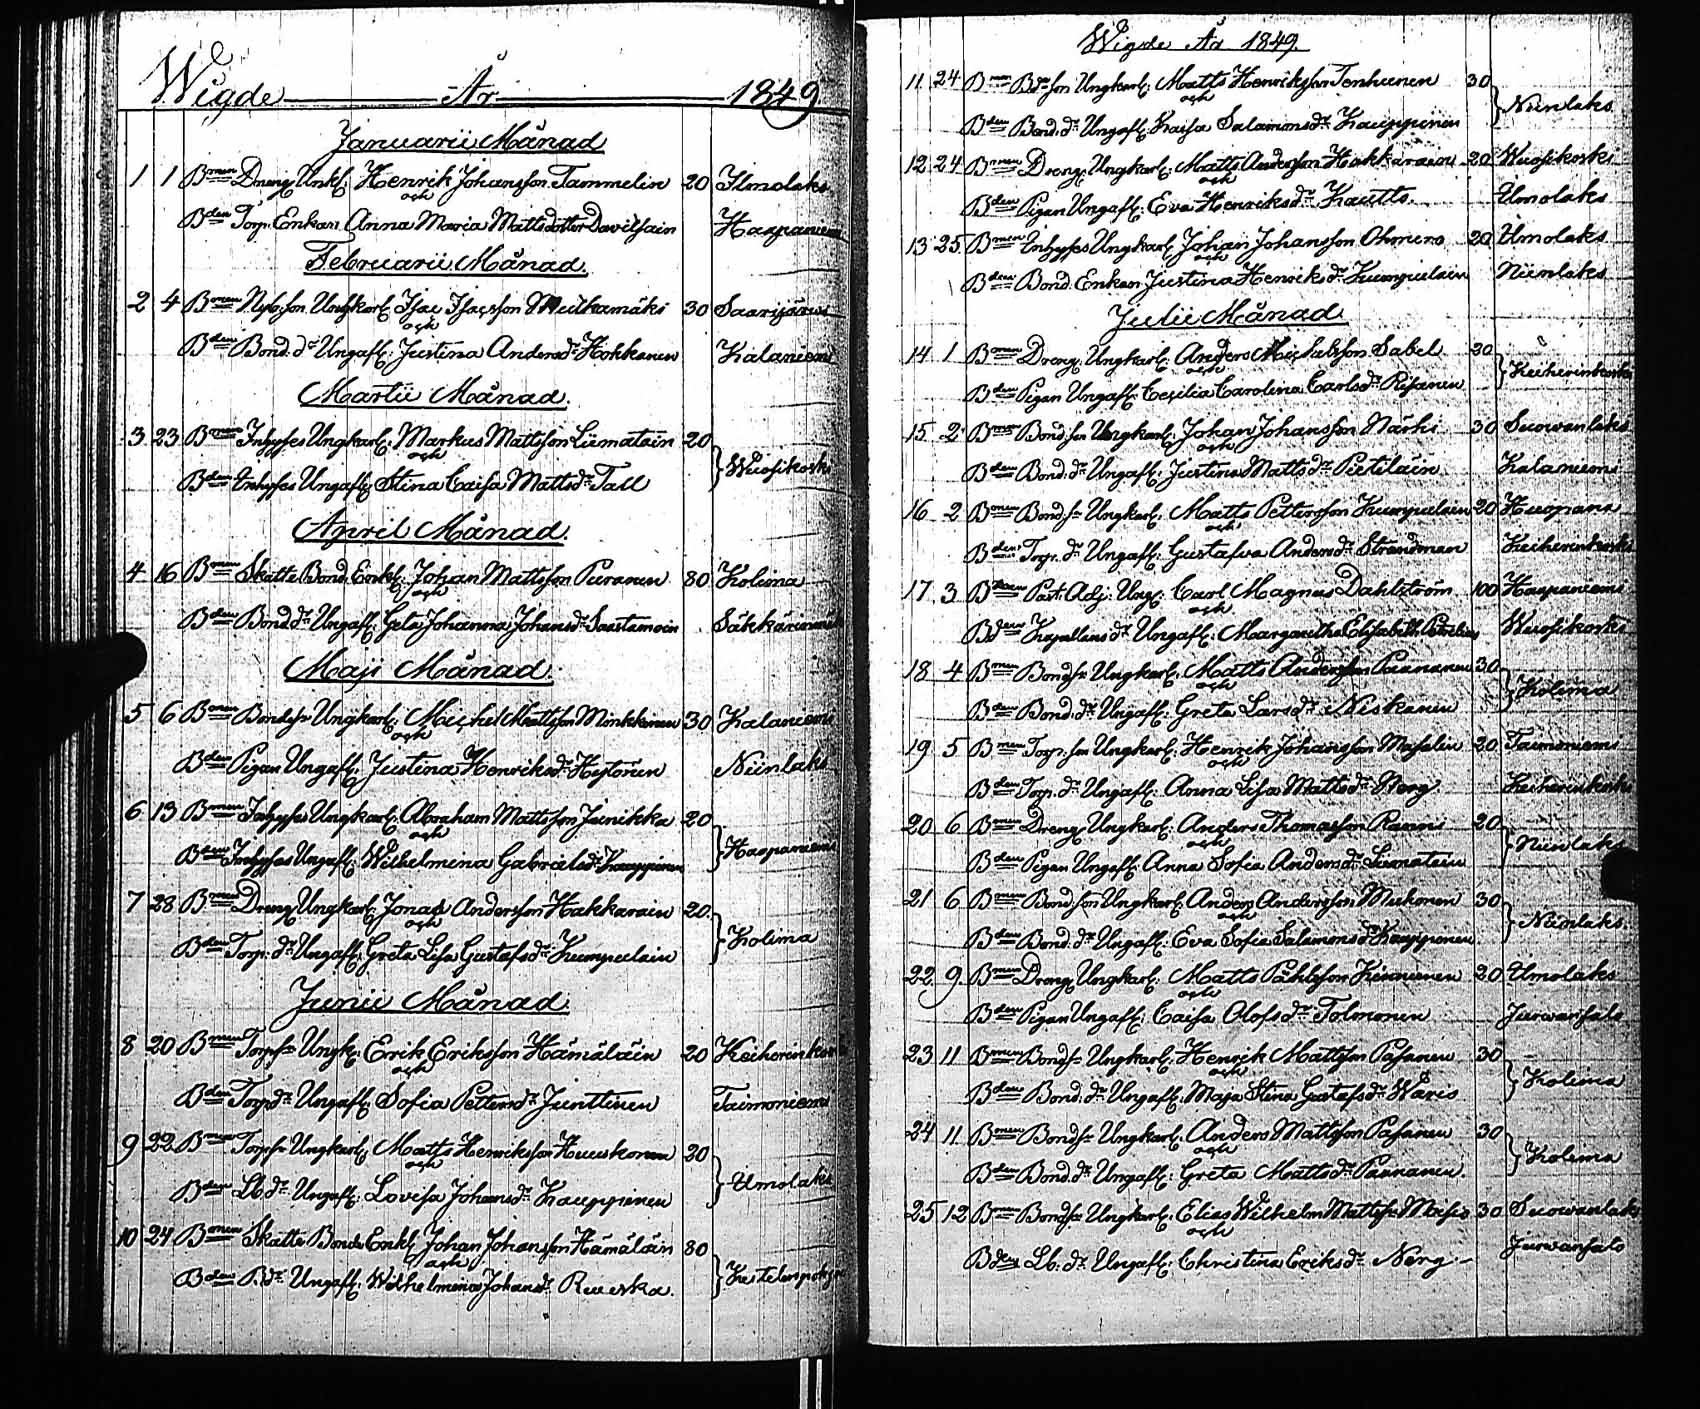 Wigde År 1849
Januarii Månad
1 1 Bmen Dreng Unkl: Henrik Johansson Tammelin 20 Ilmolaks
och
Bden Torp. Enkan Anna Maria Mattsdotter Davilsain Haapaniemi
Februarii Månad.
2 4 Bmen Nyb. son Ungkarl: Isac Isacsson Mulikamäki 30 Saarijärvi
och
Bden Bond. dr Ungafl: Justina Andersdr Hokkanen Kalaniemi
Martii Månad.
3 23 Bmen Inhyses Ungkarl: Markus Mattsson Liimatain 20
och
} Wuosikoski
Bden Inhyses Ungafl: Stina Caisa Mattsdr Tall
April Månad.
4 16 Bmen Skatte Bond. Enkl: Johan Mattsson Puranen 80 Kolima
och
Bden Bond. dr Ungafl: Greta Johanna Johansdr Saastamoin Säkkäriniemi
Maji Månad.
5 6 Bmen Bondesr Ungkarl: Michel Mattsson Minkkinen 30 Kalaniemi
och
Bden Pigan Ungafl: Justina Henriksdr Hytönen Niinlaks
6 13 Bmen Inhyses Ungkarl: Abraham Mattsson Jänikka 20
och
} Haapaniemi
Bden Inhyses Ungafl: Wilhelmina Gabrielsdr Kauppinen
7 28 Bmen Dreng Ungkarl: Jonas Andersson Hakkarain 20
och
} Kolima
Bden Torp. dr Ungafl: Greta Lisa Gustafsdr Kumpulain
Junii Månad.
8 20 Bmen Torpsr Ungk: Erik Eriksson Hämäläin 20 Keiherinkoski
och
Bden Torpdr Ungafl: Sofia Pettersdr Junttinen Taimoniemi
9 22 Bmen Torpsr Ungkarl: Matts Henriksson Huuskonen 20
och
} Ilmolaks
Bden Lb. dr Ungafl: Lovisa Johansdr Kauppinen
10 24 Bmen Skatte Bonde Enkl: Johan Johansson Hämäläin 80
och
Bden B. dr Ungafl: Wilhelmina Johansdr Ruuska.
Wigde År 1849.
11 24 Bmen Bdeson Ungkarl: Matts Henriksson Tenhunen 30
och
} Niinlaks
Bden Bond. dr Ungafl: Kaisa Salamonsdr Kauppinen
12 24 Bmen Dreng Ungkarl: Matts Andersson Hakkarainen 20 Wuosikoski
och
Bden Pigan Ungafl: Eva Henriksdr Kautto. Ilmolaks
13 25 Bmen Inhyses Ungkarl: Johan Johansson Ohmero 20 Ilmolaks
och
Bden Bond. Enkan Justina Henriksdr Kumpulain Niinlaks
Julii Månad.
14 1 Bmen Dreng Ungkarl: Anders Michelsson Sabel 20
och
} Keiherinkoski
Bden Pigan Ungafl: Cecilia Carolina Carlsdr Risanen
15 2 Bmen Bond. son Ungkarl: Johan Johansson Närhi 30 Suowanlaks
och
Bden Bond. dr Ungafl: Justina Mattsdr Pietiläin Kalaniemi
16 2 Bmen Bond. sr Ungkarl: Matts Pettersson Kumpulain 20 Huopana
och
Bden Torp. dr Ungafl: Gustafva Andersdr Strandman Keiherinkoski
17 3 Bmen Past. Adj: Ung: Carl Magnus Dahlström 100 Haapaniemi
och
Bden Kapellans dr Ungafl: Margaretha Elisabeth Petrelius Wuosikoski
18 4 Bmen Bondsr Ungkarl: Matts Andersson Paananen 30
och
} Kolima
Bden Bond. dr Ungafl: Greta Larsdr Niskanen
19 5 Bmen Torp. son Ungkarl: Henrik Johansson Maselin 20 Taimoniemi
och
Bden Torp. dr Ungafl: Anna Lisa Mattsdr Norg Keiherinkoski
20 6 Bmen Dreng Ungkarl: Anders Thomasson Rauni 20
och
} Niinlaks
Bden Pigan Ungafl: Anna Sofia Andersdr Liimatain
21 6 Bmen Bond. son Ungkarl: Anders Andersson Muhonen 30
och
} Niinlaks.
Bden Bond. dr Ungafl: Eva Sofia Salamonsdr Kauppinen
22 9. Bmen Dreng Ungkarl: Matts Påhlsson Kinnunen 20 Ilmolaks
och
Bden Pigan Ungafl: Caisa Olofsdr Tolmonen Jurwansalo
23 11 Bmen Bondsr Ungkarl: Henrik Mattsson Pasanen 30
och
} Kolima
Bden Bond. dr Ungafl: Maja Stina Gustafsdr Waris
24 11 Bmen Bondsr Ungkarl: Anders Mattsson Pasanen 30
och
} Kolima
Bden Bond dr Ungafl: Greta Mattsdr Paananen.
25 12 Bmen Bondsr Ungkarl: Elias Wilhelm Mattssr Maisio 30 Suowanlaks
och
Bden Lb. dr Ungafl: Christina Eriksdr Norg Jurwansalo